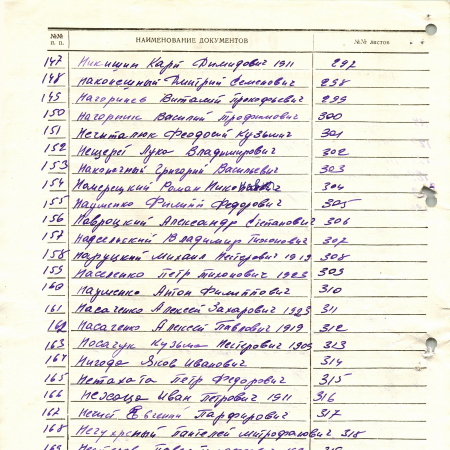 №№ п. п. НАИМЕНОВАНИЕ ДОКУМЕНТОВ №№ листов
147 Никишин Карп Димидович 1911 297
148 Наконешный Дмитрий Семенович 298
149 Нагорнев Виталий Прокофьевич 299
150 Нагорный Василий Трофимович 300
151 Нечиталюк Феодосий Кузьмич 301
152 Нещерет Лука Владимирович 302
153 Наконечный Григорий Васильевич 303
154 Намерецкий Роман 304
155 Науменко Филипп Федорович 305
156 Навроцкий Александр Степанович 306
157 Надельский Владимир Тихонович 307
158 Наруцкий Михаил Нестерович 1913 308
159 Населенко Петр Тихонович 1923 309
160 Науменко Антон Филиппович 310
161 Насаченко Алексей Захарович 1923 311
162 Насаченко Алексей Павлович 1919 312
163 Носачук Кузьма Нестерович 1909 313
164 Нигода Яков Иванович 314
165 Нетахата Петр Федорович 315
166 Иван Петрович 1911 316
167 Евгений Парфирович 317
168 Пантелей Митрофанович 318
169